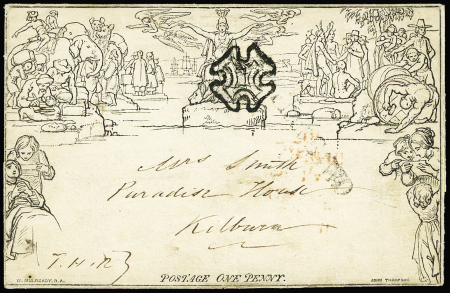 Mrs Smith
Paradise House
Kilburn
T.H.R
W. MULREADY, R.A.
POSTAGE ONE PENNY.
JOHN THOMPSON